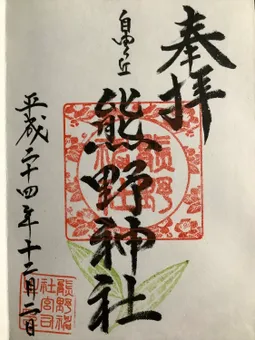 奉拝
自由ヶ丘
熊野神社
平成二十四年十二月一日
熊野神社
熊野神社宮司之印